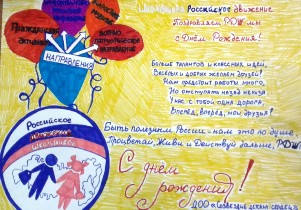 Российское движение
Поздравляем РДШ мы
с Днём Рождения!
Гражданская
активность
Военно-
патриотическое
направление
НАПРАВЛЕНИЯ
Больше талантов и классных идей,
Весёлых и добрых желаем друзей!
Нам предстоит работы много,
Но отступать назад нельзя
У нас с тобой одна дорога,
Вперёд, вперёд, мои друзья!
Российское
движение
школьников
Быть полезным России - нам это по душе
Процветай, Живи и Действуй дальше, РДШ!
С днём
рождения!
ДОО